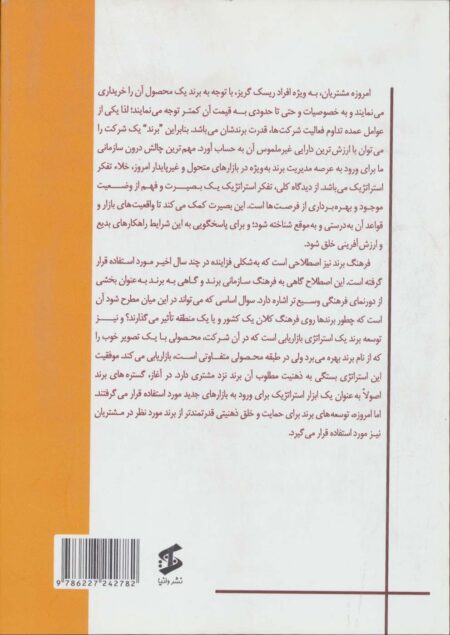 امروزه مشتریان، به ویژه افراد ریسک گریز، با توجه به برند یک محصول آن را خریداری
می‌نمایند و به خصوصیات و حتی تا حدودی به قیمت آن کمتر توجه می‌نمایند؛ لذا یکی از
عوامل عمده تداوم فعالیت شرکت‌ها، قدرت برندشان می‌باشد. بنابراین "برند" یک شرکت را
می‌توان با ارزش ترین دارایی غیرملموس آن به حساب آورد. مهم‌ترین چالش درون سازمانی
ما برای ورود به عرصه مدیریت برند به‌ویژه در بازارهای متحول و غیرپایدار امروز، خلاء تفکر
استراتژیک می‌باشد. از دیدگاه کلی، تفکر استراتژیک یک بصیرت و فهم از وضعیت
موجود و بهره‌برداری از فرصت‌ها است. این بصیرت کمک می‌کند تا واقعیت‌های بازار و
قواعد آن به‌درستی و به‌موقع شناخته شود؛ و برای پاسخگویی به این شرایط راهکارهای بدیع
و ارزش‌آفرینی خلق شود.
فرهنگ برند نیز اصطلاحی است که به‌شکلی فزاینده در چند سال اخیر مورد استفاده قرار
گرفته است. این اصطلاح گاهی به فرهنگ سازمانی برند و گاهی به برند به‌عنوان بخشی
از دورنمای فرهنگی وسیع تر اشاره دارد. سوال اساسی که می‌تواند در این میان مطرح شود آن
است که چطور برندها روی فرهنگ کلان یک کشور و یا یک منطقه تأثیر می‌گذارند؟ و نیز
توسعه برند یک استراتژی بازاریابی است که در آن شرکت، محصولی با یک تصویر خوب را
که از نام برند بهره می‌برد ولی در طبقه محصولی متفاوتی است، بازاریابی می‌کند. موفقیت
این استراتژی بستگی به ذهنیت مطلوب آن برند نزد مشتری دارد. در آغاز، گستره های برند
اصولاً به عنوان یک ابزار استراتژیک برای ورود به بازارهای جدید مورد استفاده قرار می گرفتند.
اما امروزه، توسعه‌های برند برای حمایت و خلق ذهنیتی قدرتمندتر از برند مورد نظر در مشتریان
نیز مورد استفاده قرار می گیرد.
نشر وانیا
9 786227 242782